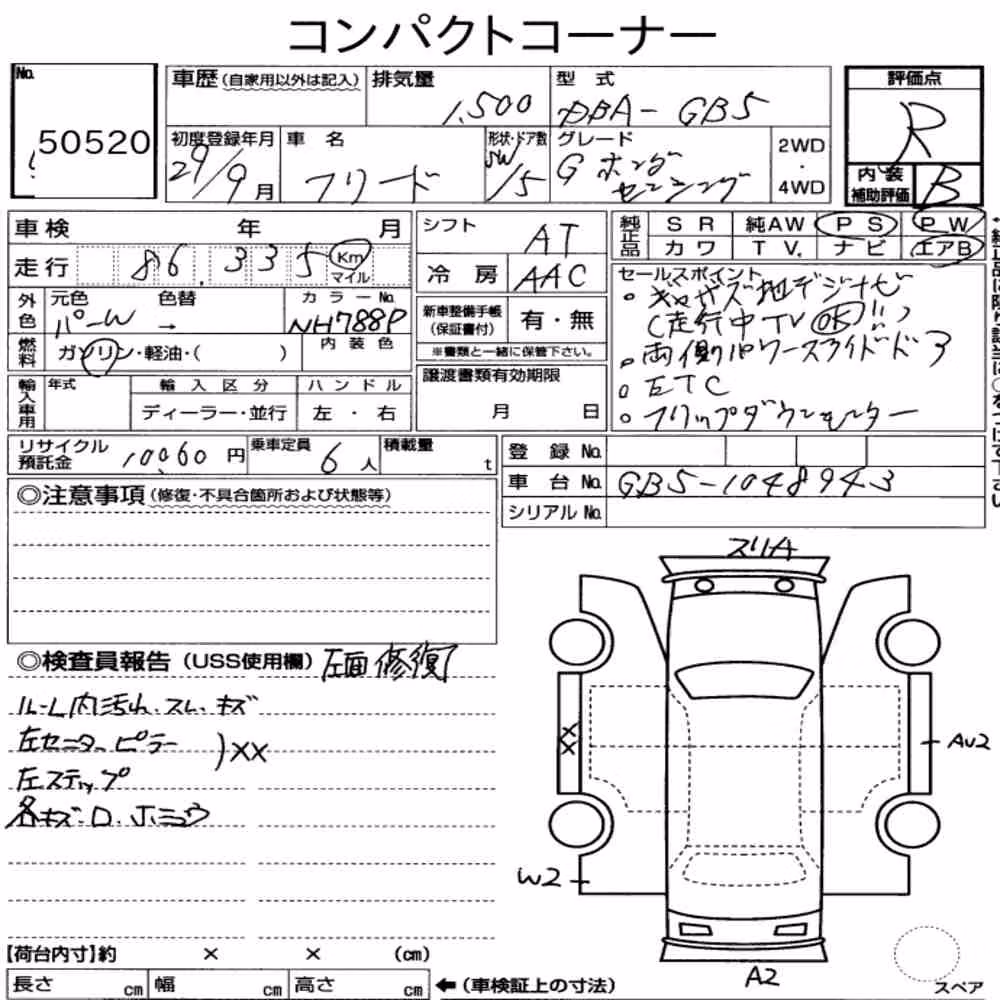 コンパクトコーナー
No. 50520
車歴(自家用以外は記入) 排気量 1,500 型式 DBA- GB5
評価点 R
初度登録年月 29/9月 車名 フリード 形状・ドア数 SW/5 グレード G ホンダセンシング 2WD・4WD
内装補助評価 B
車検 年 月
走行 86,335 Km マイル
シフト AT
冷房 AAC
純正品 SR 純AW PS PW
カワ TV. ナビ エアB
外色 元色 パールW 色替 → カラーNo. NH788P
内装色
燃料 ガソリン・軽油・( )
新車整備手帳(保証書付) 有・無
※書類と一緒に保管下さい。
セールスポイント
。ギャザズ地デジナビ
(走行中TV OK!!)
。両側パワースライドドア
。ETC
。フリップダウンモニター
輸入車用 年式 輸入区分 ハンドル
ディーラー・並行 左・右
譲渡書類有効期限
月 日
リサイクル預託金 10,060円 乗車定員 6人 積載量 t
登録No.
車台No. GB5-1048943
シリアルNo.
◎注意事項(修復・不具合箇所および状態等)
◎検査員報告(USS使用欄) 左面修復了
ルーム内汚れ、スレ、キズ
左センターピラー
左ステップ ) XX
各キズ・凹、ホシュウ
スリA
XX
AU2
W2
A2
スペア
【荷台内寸】約 × × (cm)
長さ cm 幅 cm 高さ cm ←(車検証上の寸法)